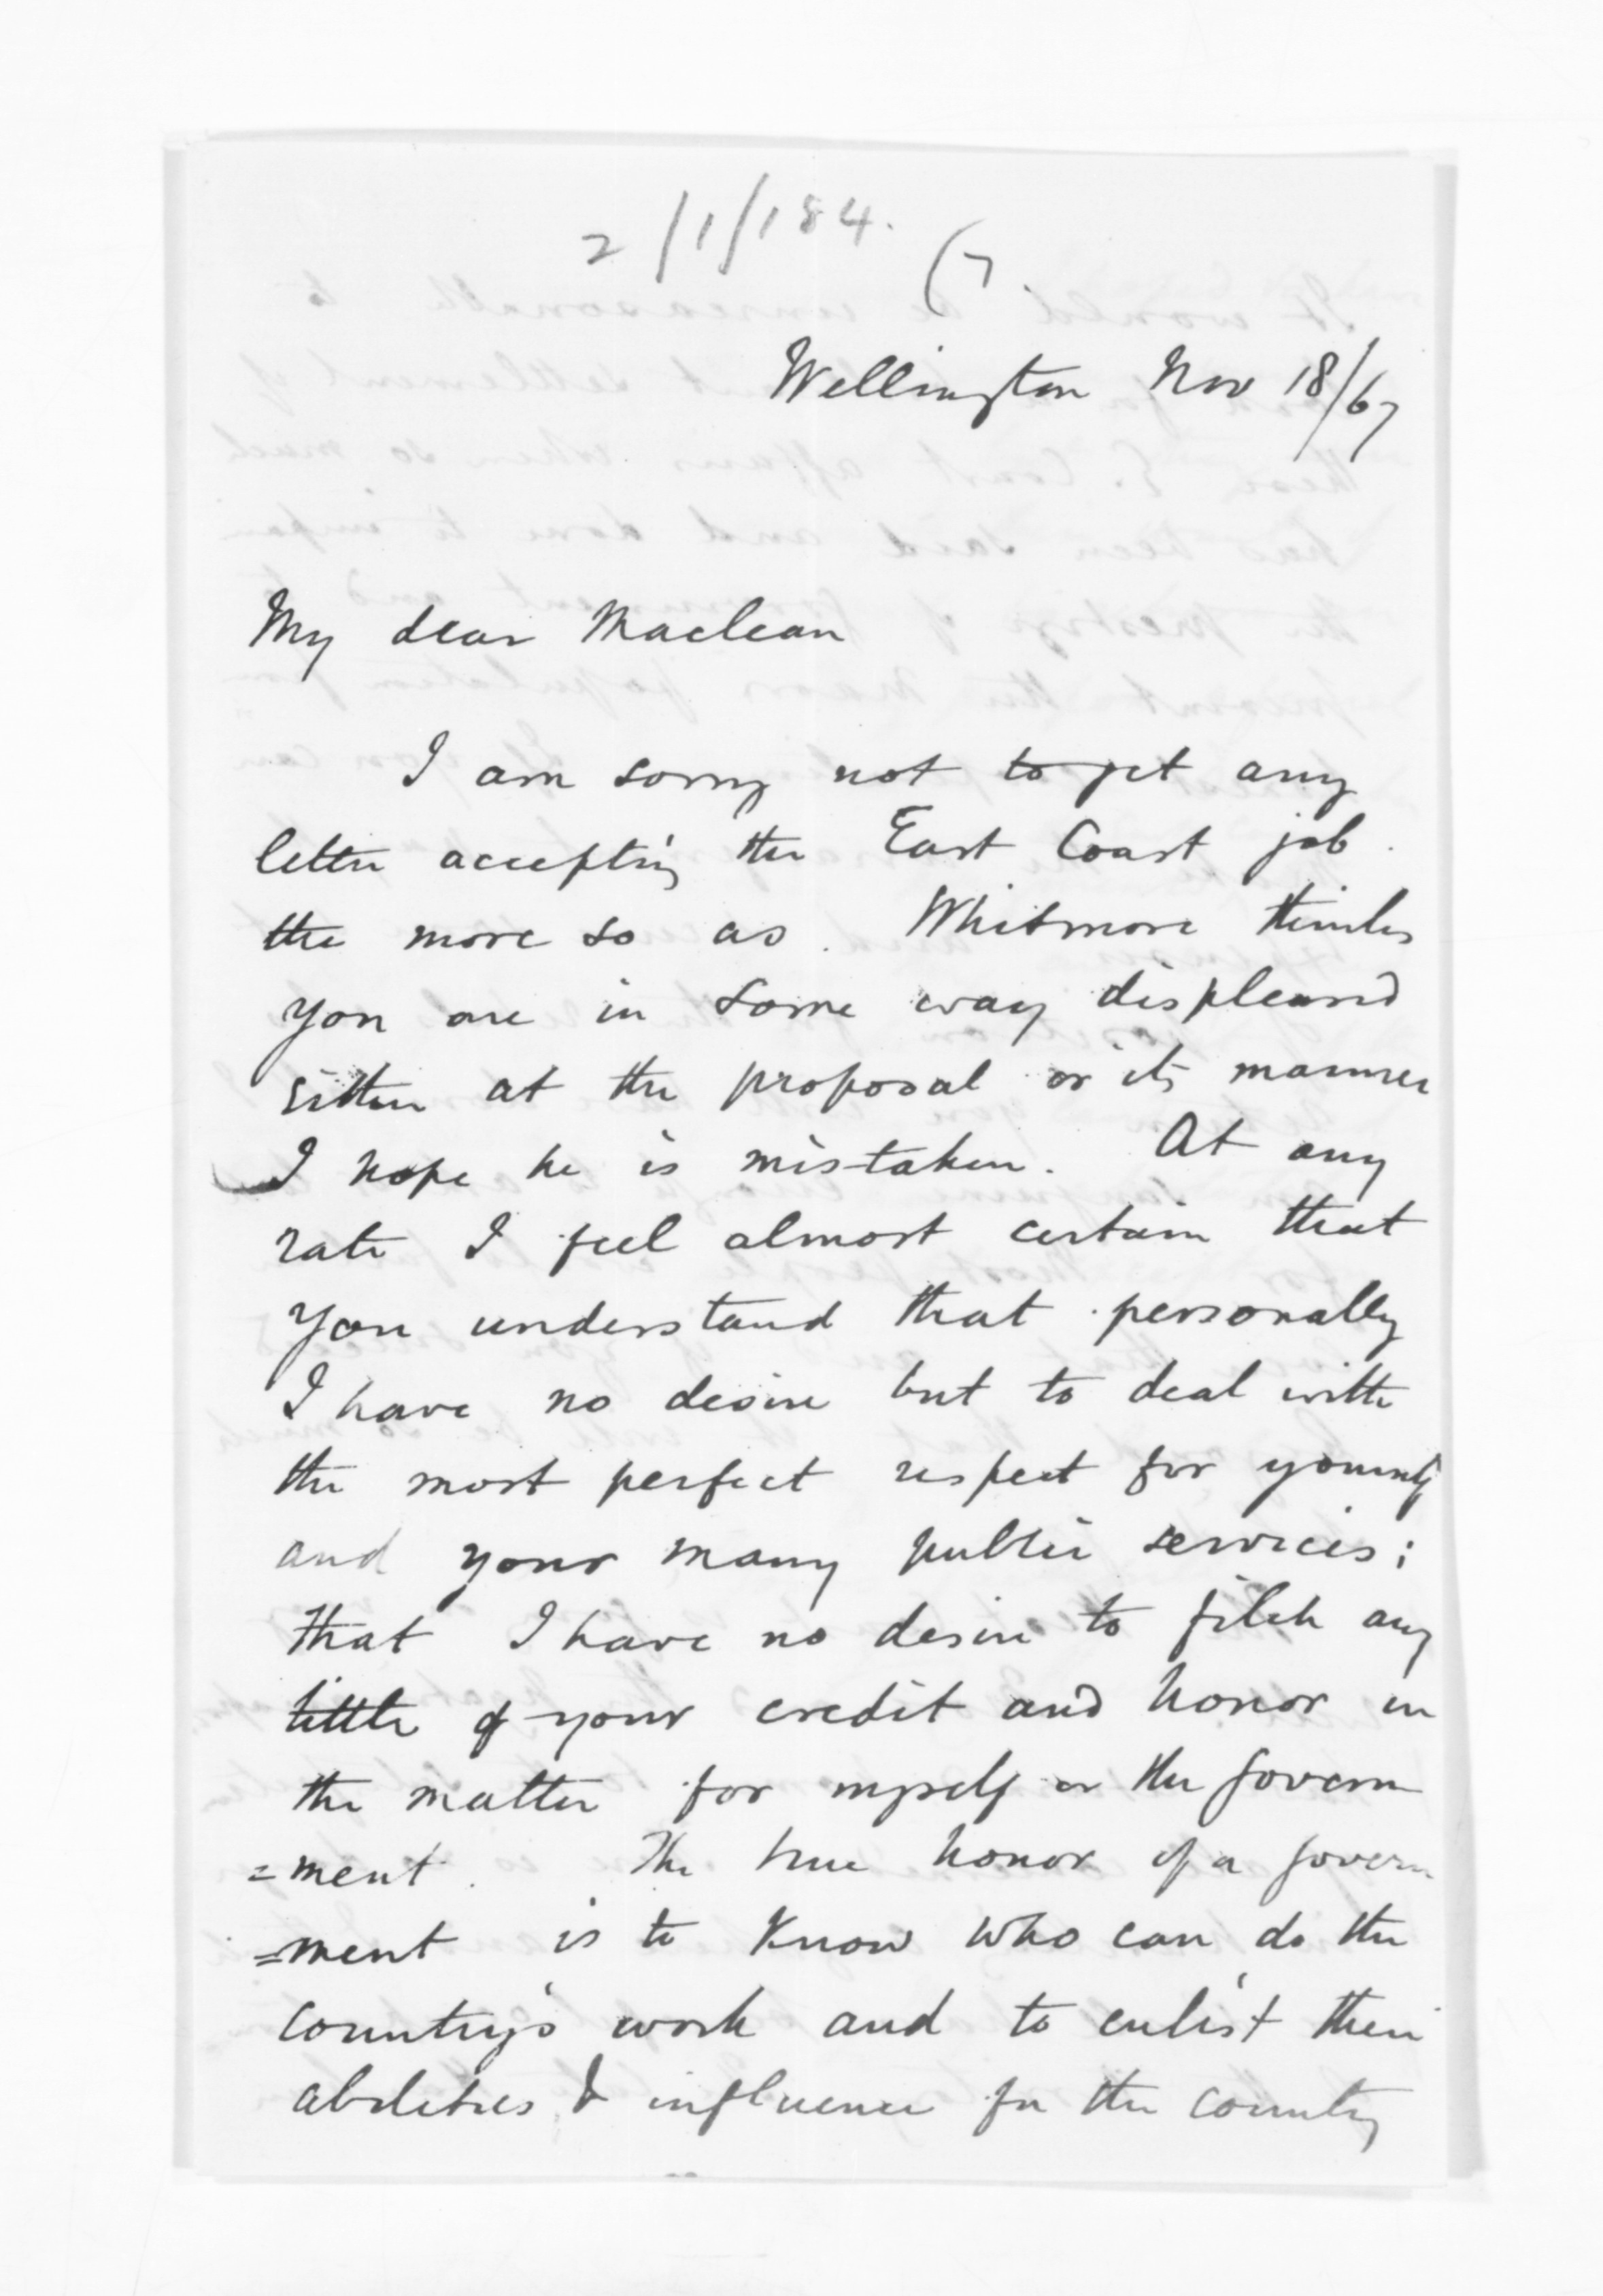 2/1/184.
(7.
Wellington Nov 18/67
My dear Maclean
I am sorry not to get any
letter accepting the East Coast job.
the more so as. Whitmore thinks
you are in some way displeased
either at the proposal or its manner
I hope he is mistaken. At any
rate I feel almost certain that
you understand that personally
I have no desire but to deal with
the most perfect respect for yourself
and your many public services;
that I have no desire to filch any
tittle of your credit and honor in
the matter for myself or the Govern
=ment. The true honor of a Govern
=ment is to know who can do the
country's work and to enlist their
abilities & influence for the country